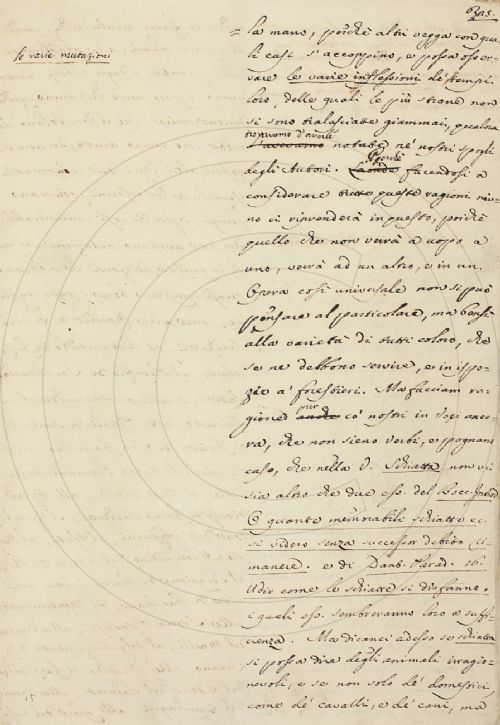 325.
= la mano, poichè altri vegga con qua-
li casi si accoppino, e possa osser-
vare le varie inflessioni de' tempi
loro, delle quali le più strane non
si sono tralasciate giammai, qualora
trovammo d'averle
l'avevamo notate ne' nostri spogli
degli Autori. Perchè
Laonde facendosi a
considerare tutte queste ragioni niu-
no ci riprenderà in questo, poichè
quello che non verrà a uopo a
uno, verrà ad un altro, e in un'
Opera così universale non si può
pensare al particolare, ma bensì
alla varietà di tutti coloro, che
se ne debbono servire, e in ispe-
zie a' forestieri. Ma facciam ra-
gione pur
anche co' nostri in Voci anco-
ra, che non sieno verbi, e pognamo
caso, che nella V. Schiatta non vi
sia altro che due ess. del Bocc. Introd.
O quante memorabili schiatte ec.
si videro senza successor debito ri-
manere. e di Dant. Parad. 16.
Udir come le schiatte si disfanno.
i quali ess. sembreranno loro a suffi-
cienza. Ma dicanci adesso se schiatta
si possa dire degli animali irragio-
nevoli, e se non solo de' domestici
come de' cavalli, e de' cani, ma
le varie mutazioni